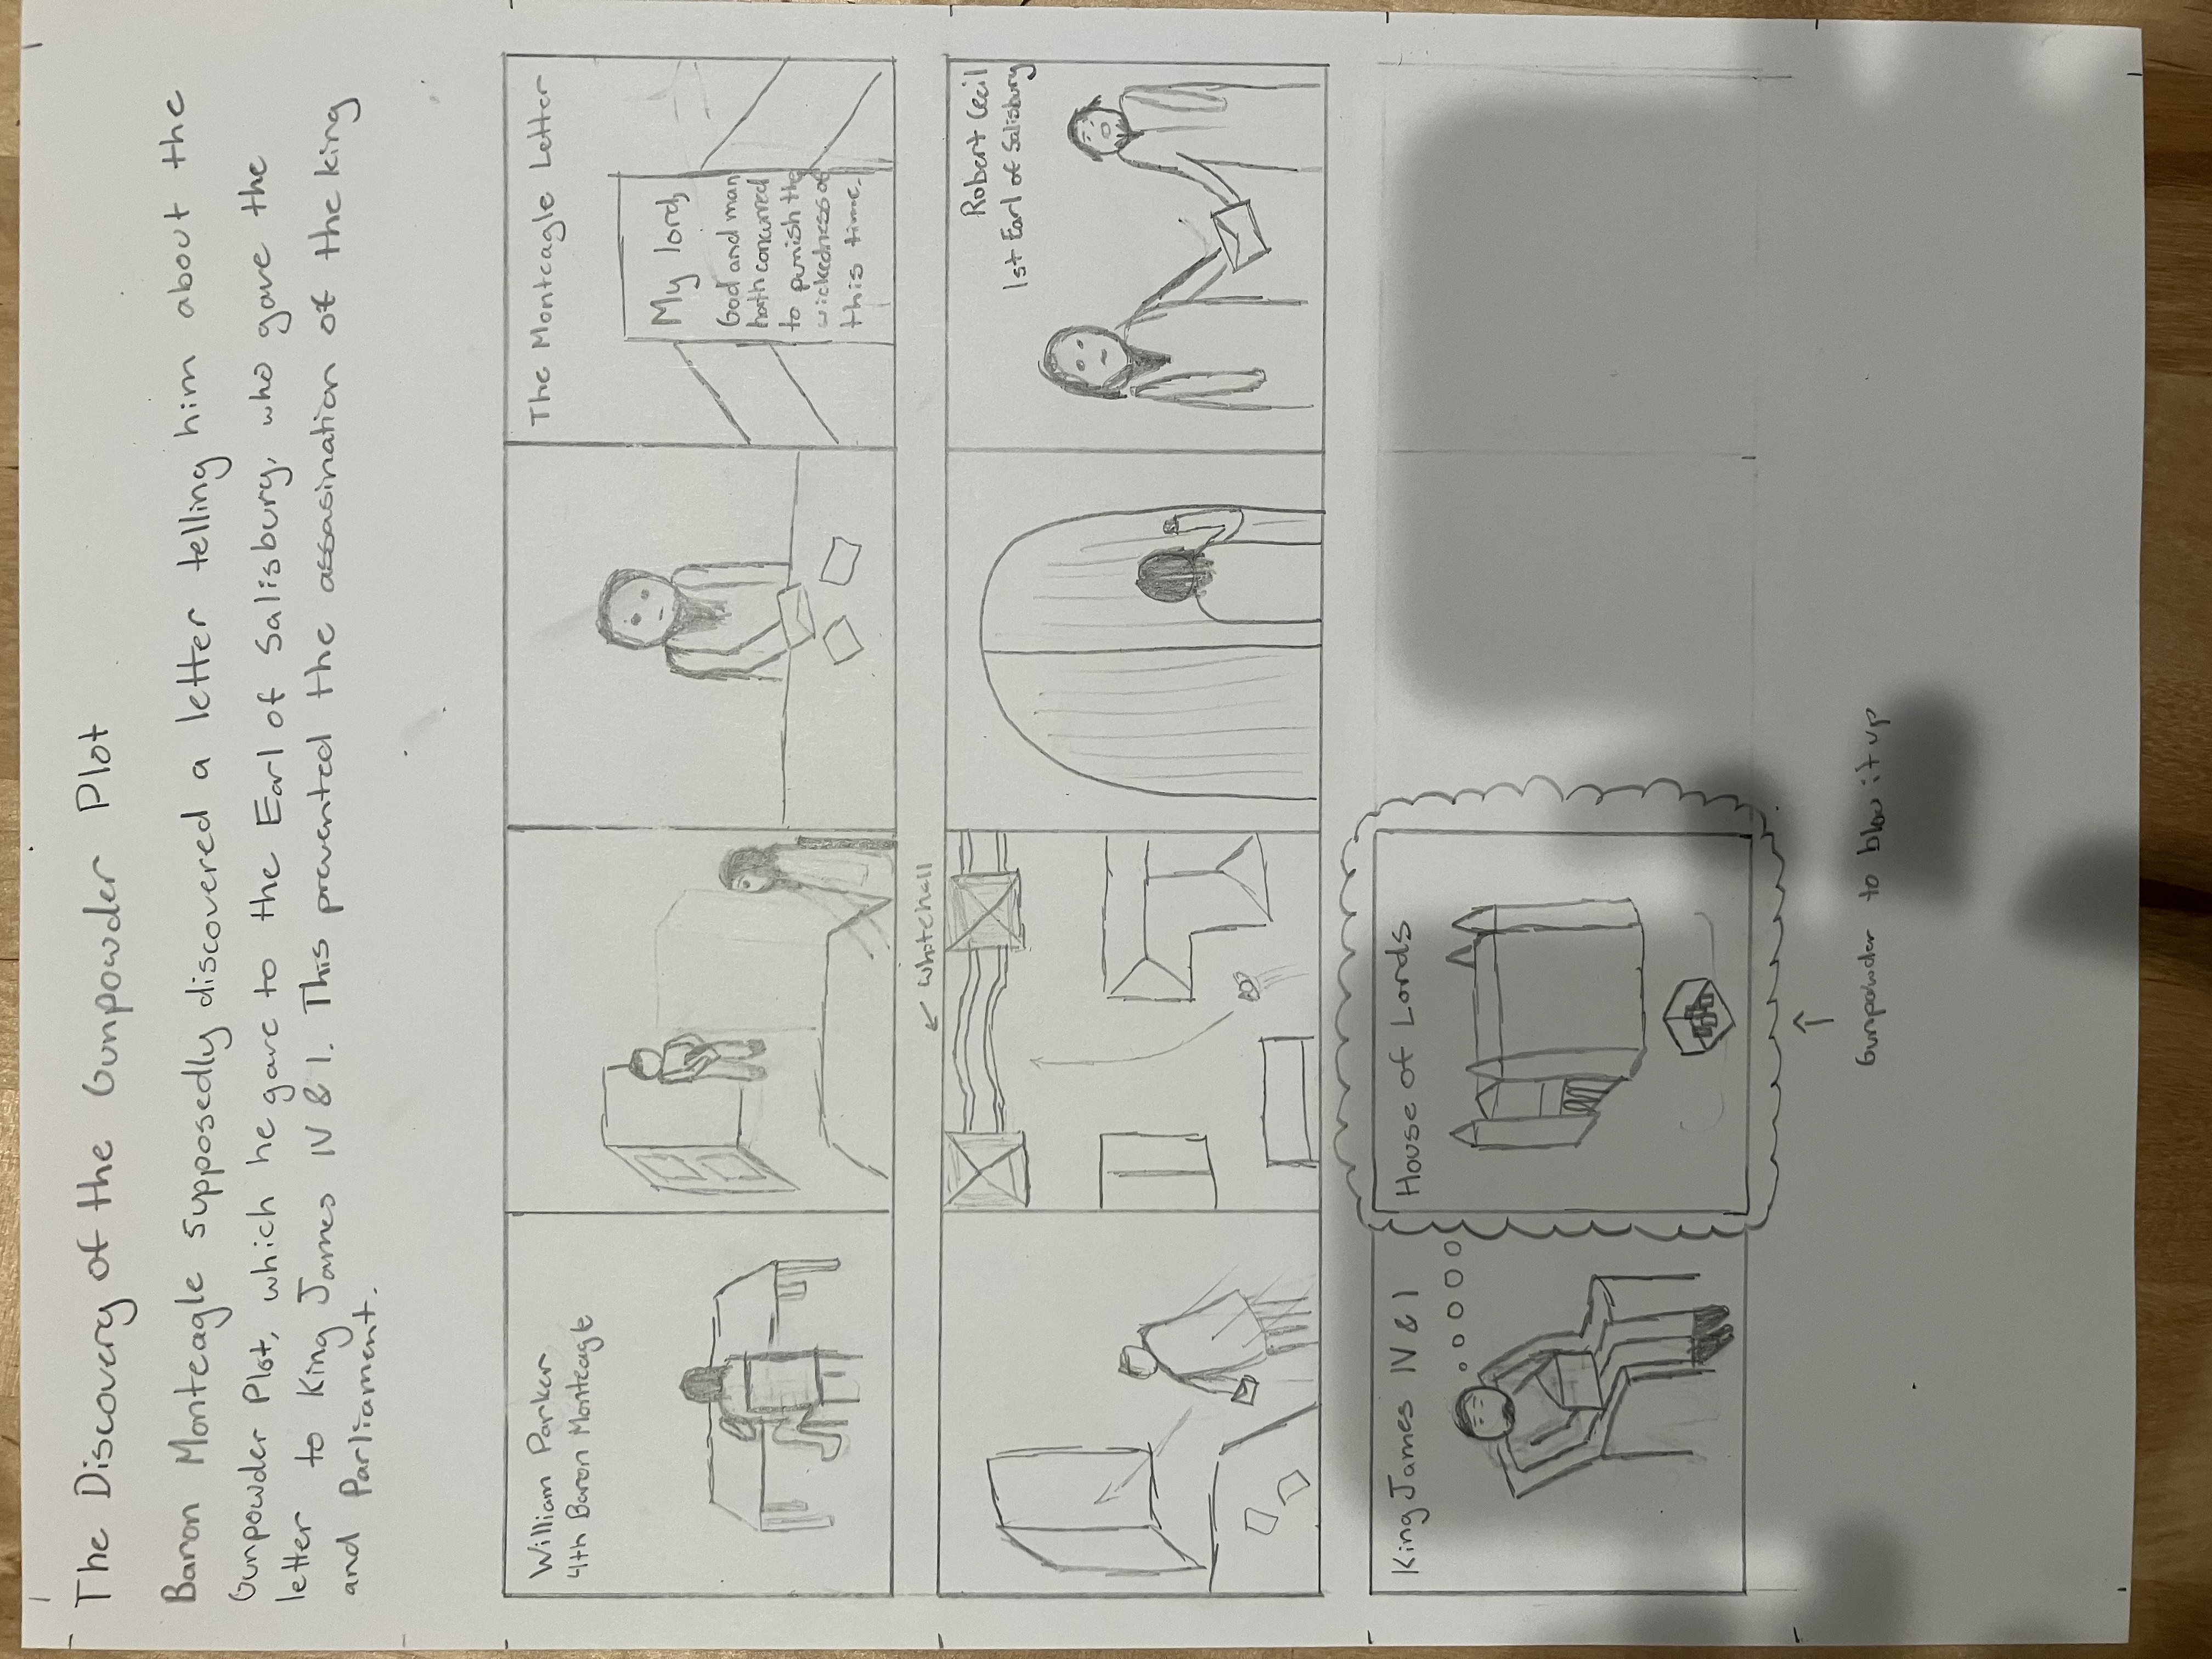 The Discovery of the Gunpowder Plot
Baron Monteagle supposedly discovered a letter telling him about the
Gunpowder Plot, which he gave to the Earl of Salisbury, who gave the
letter to King James IV & I. This prevented the assasination of the king
and Parliament.
William Parker
4th Baron Monteagle
The Monteagle Letter
My lord,
God and man
hath concurred
to punish the
wickedness of
this time.
Whitehall
Robert Cecil
1st Earl of Salisbury
King James IV & I
House of Lords
Gunpowder to blow it up